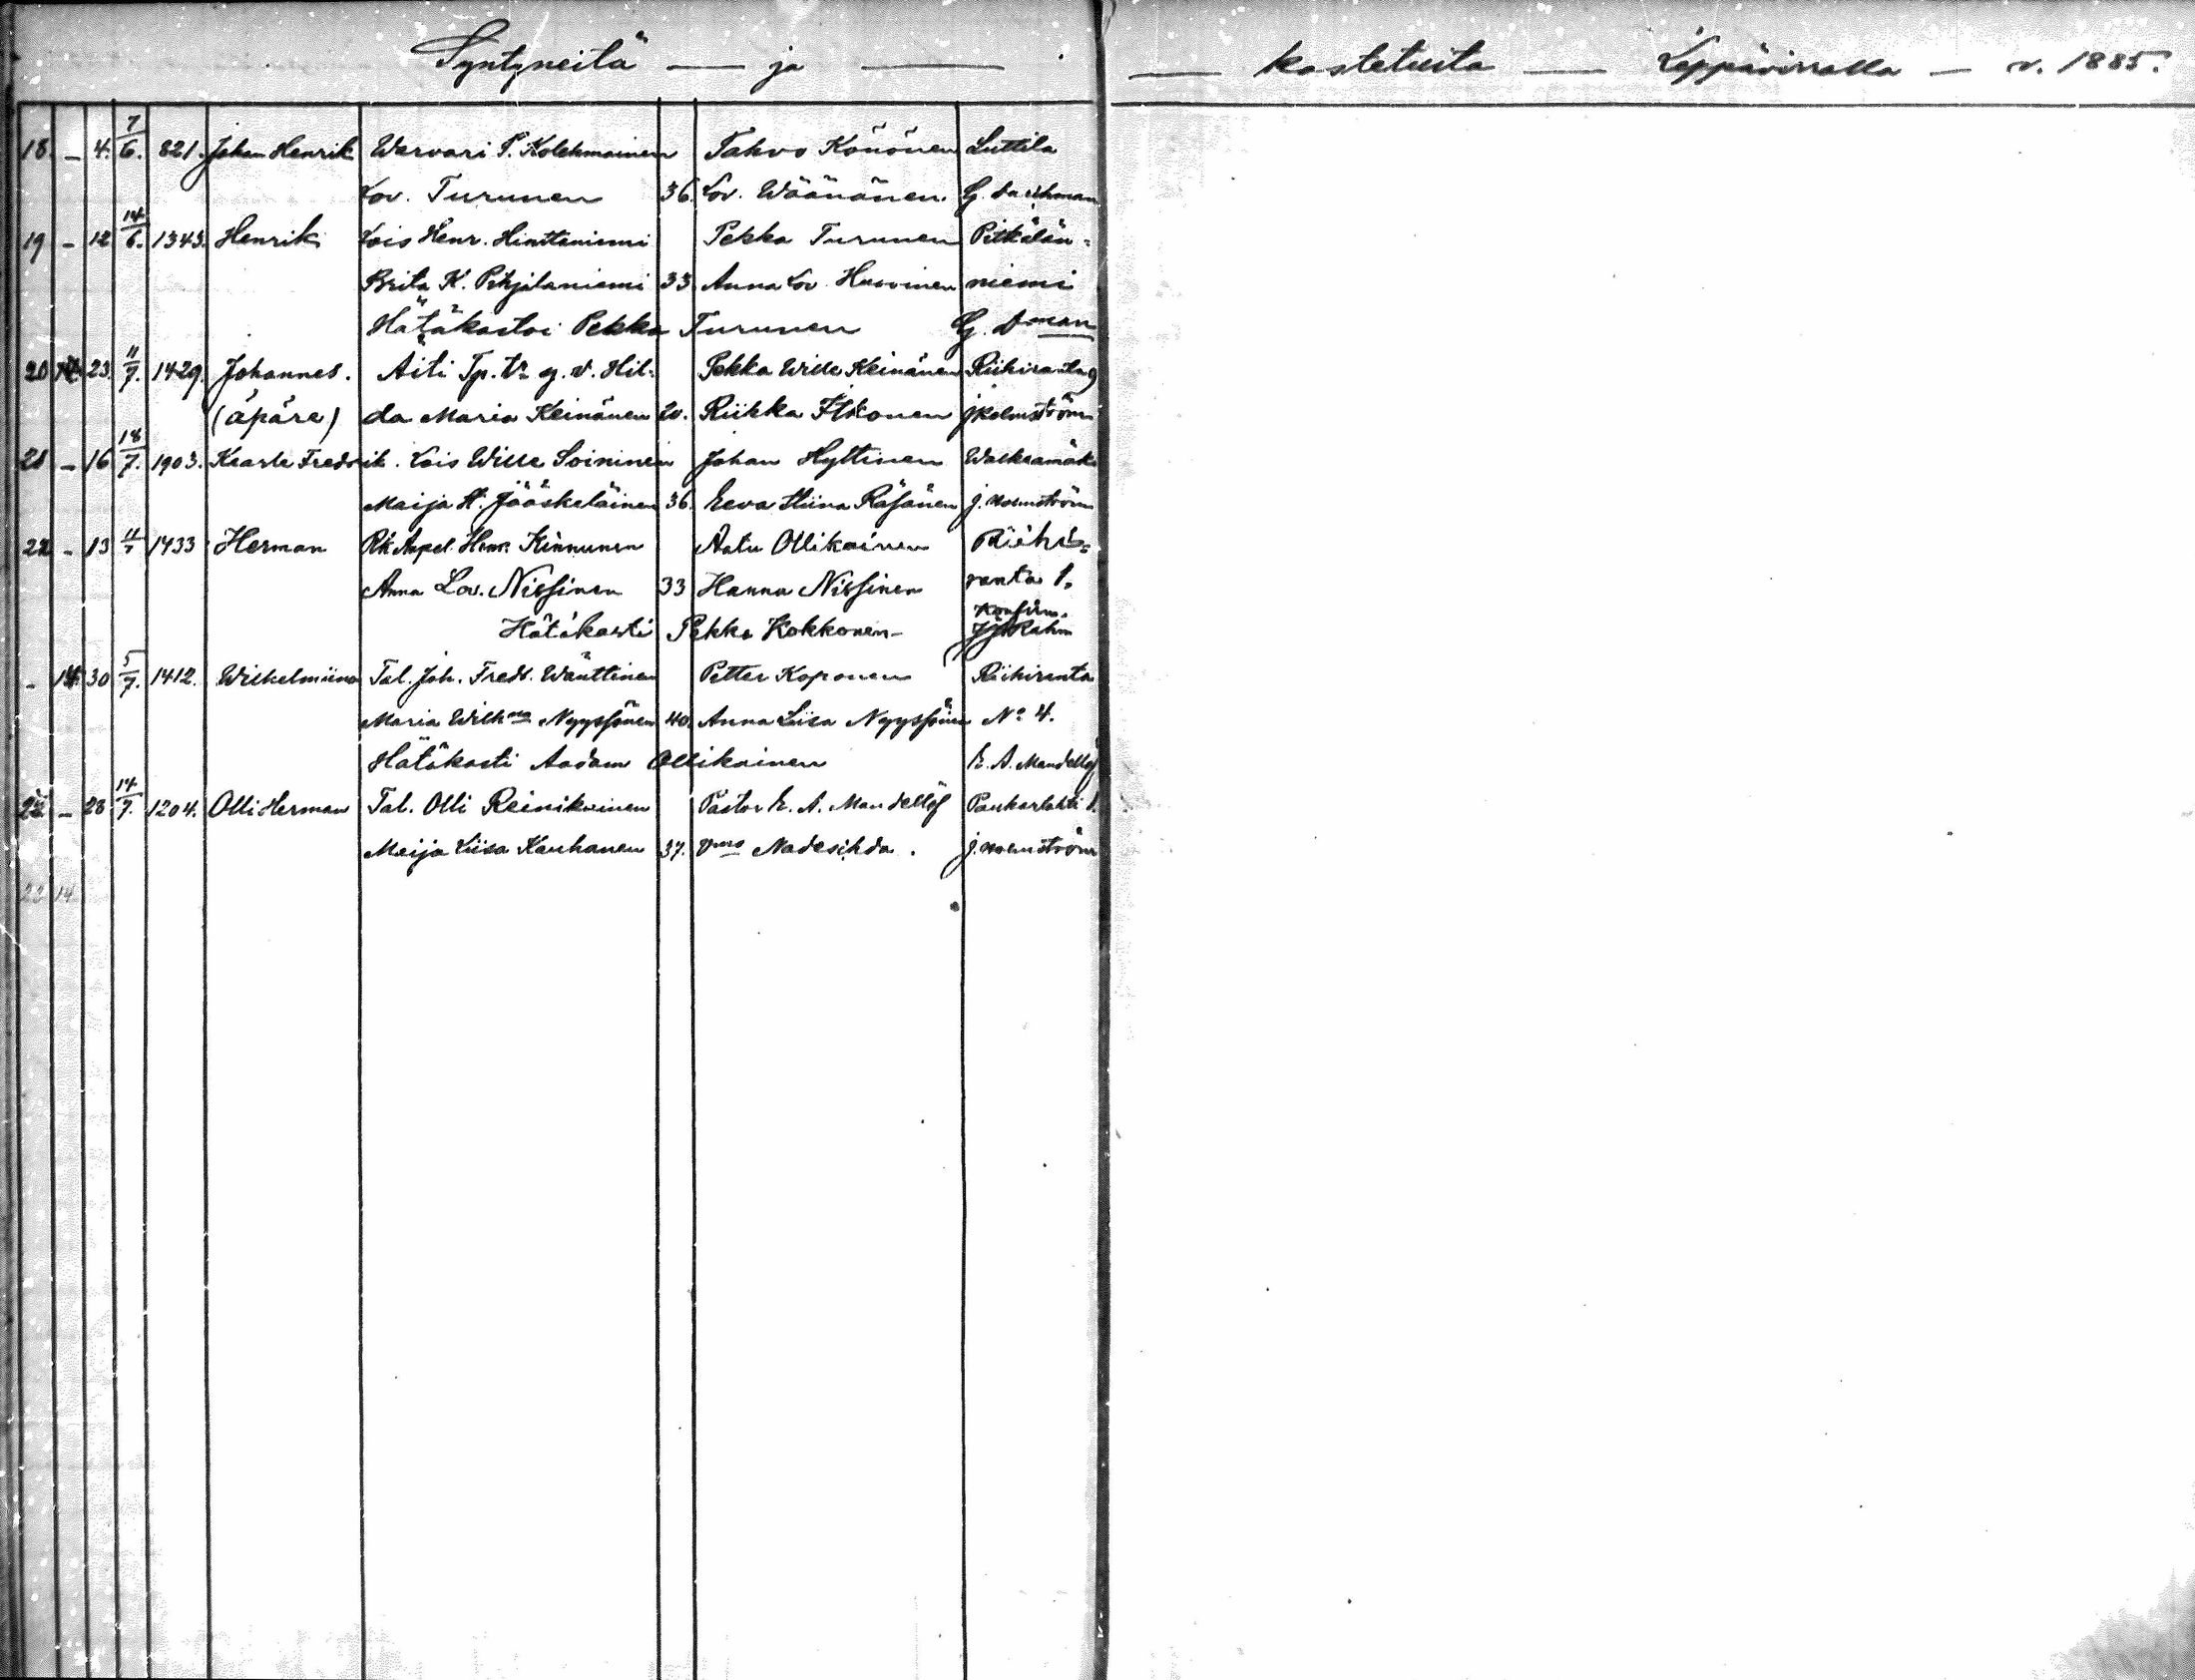 Syntyneitä — ja — — kastetuita — Leppävirralla — v. 1885.
18 – 4. 7/6. 821. Johan Henrik Warvari P. Kolehmainen Tahvo Könönen Luttila
Lov. Turunen 36. Lov. Wäänänen. G.
19 – 12 14/6. 1343. Henrik Lois Henr. Hinttaniemi Pekka Turunen Pitkälän-
Brita K. Pohjilaniemi 33 Anna Lov. Huovinen niemi
Hätäkastoi Pekka Turunen G. D man
20 23. 11/7. 1429. Johannes. Äiti Tp. tr g. v. Hil- Pekka Wille Keinänen Riihiranta 9
(äpäre) da Maria Keinänen 20. Riikka Itkonen J Holmström
21 – 16 18/7. 1903. Kaarle Fredrik. Lois Wille Soininen Johan Hyttinen Walkeamäki
Maija H. Jääskeläinen 36. Eeva Stiina Räsänen J. Holmström
22 – 13 1433 Herman Rk Aapel Henr. Kinnunen Aatu Ollikainen Riihi-
Anna Lov. Nissinen 33 Hanna Nissinen ranta 1.
Hätäkasti Pekka Kokkonen – Konfirm.
– 14. 30 5/7. 1412. Wilhelmiina Tal. Joh. Fredr. Wänttinen Petter Koponen Riihiranta
Maria Wilhna Nyyssönen 40. Anna Liisa Nyyssönen No 4.
Hätäkasti Aadam Ollikainen E. A. Mandellöf
22 – 28 14/7. 1204. Olli Herman Tal. Olli Reinikainen Pastor E. A. Mandellöf Paukarlahti 1.
Maija Liisa Kauhanen 37. Vms Nadeschda. J. Holmström
22 14